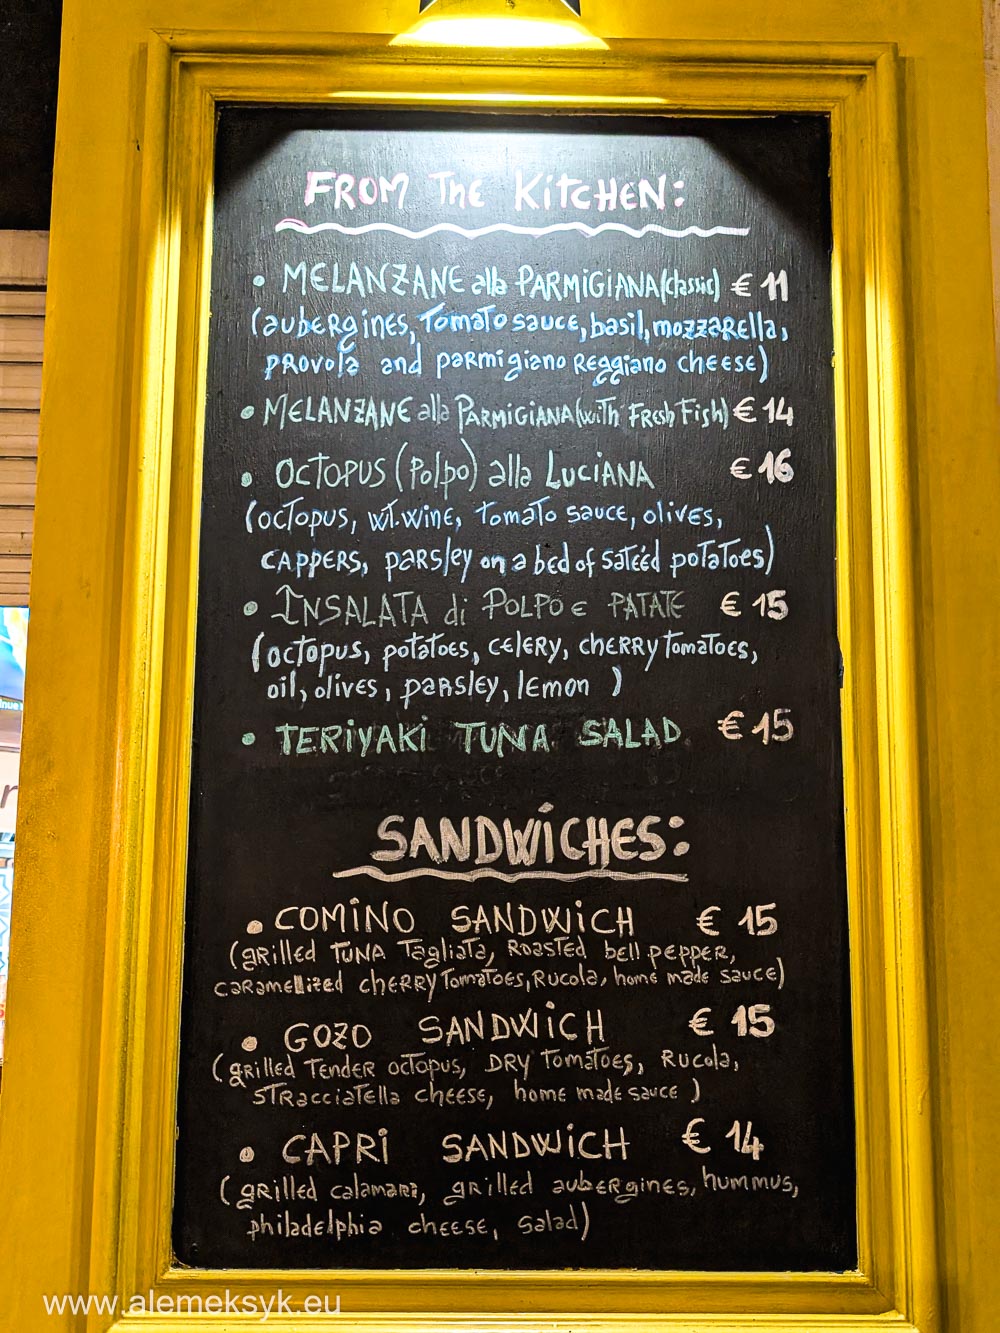 FROM The KiTCHEN:
• MELANZANE alla PARMIGIANA (classic) € 11
(aubergines, Tomato sauce, basil, mozzarella,
PROVOla and parmigiano Reggiano cheese)
• MELANZANE alla PARMIGIANA (wiTh FResh Fish) € 14
• OCTOPUS (Polpo) alla LUCIANA € 16
(octopus, wt.wine, Tomato sauce, olives,
CAPPERS, parsley on a bed of sateéd potatoes)
• INSALATA di POLPO E PATATE € 15
(octopus, potatoes, celery, cherry Tomatoes,
oil, olives, parsley, lemon)
• TERiYAKi TUNA SALAD € 15
SANDWiCHES:
• COMiNO SANDWiCH € 15
(grilled TUNA Tagliata, Roasted bell pepper,
caramelized cherry Tomatoes, Rucola, home made sauce)
• GOZO SANDWiCH € 15
(grilled Tender octopus, DRY Tomatoes, Rucola,
STRacciatella cheese, home made sauce)
• CAPRi SANDWiCH € 14
(grilled calamari, grilled aubergines, hummus,
philadelphia cheese, salad)
www.alemeksyk.eu